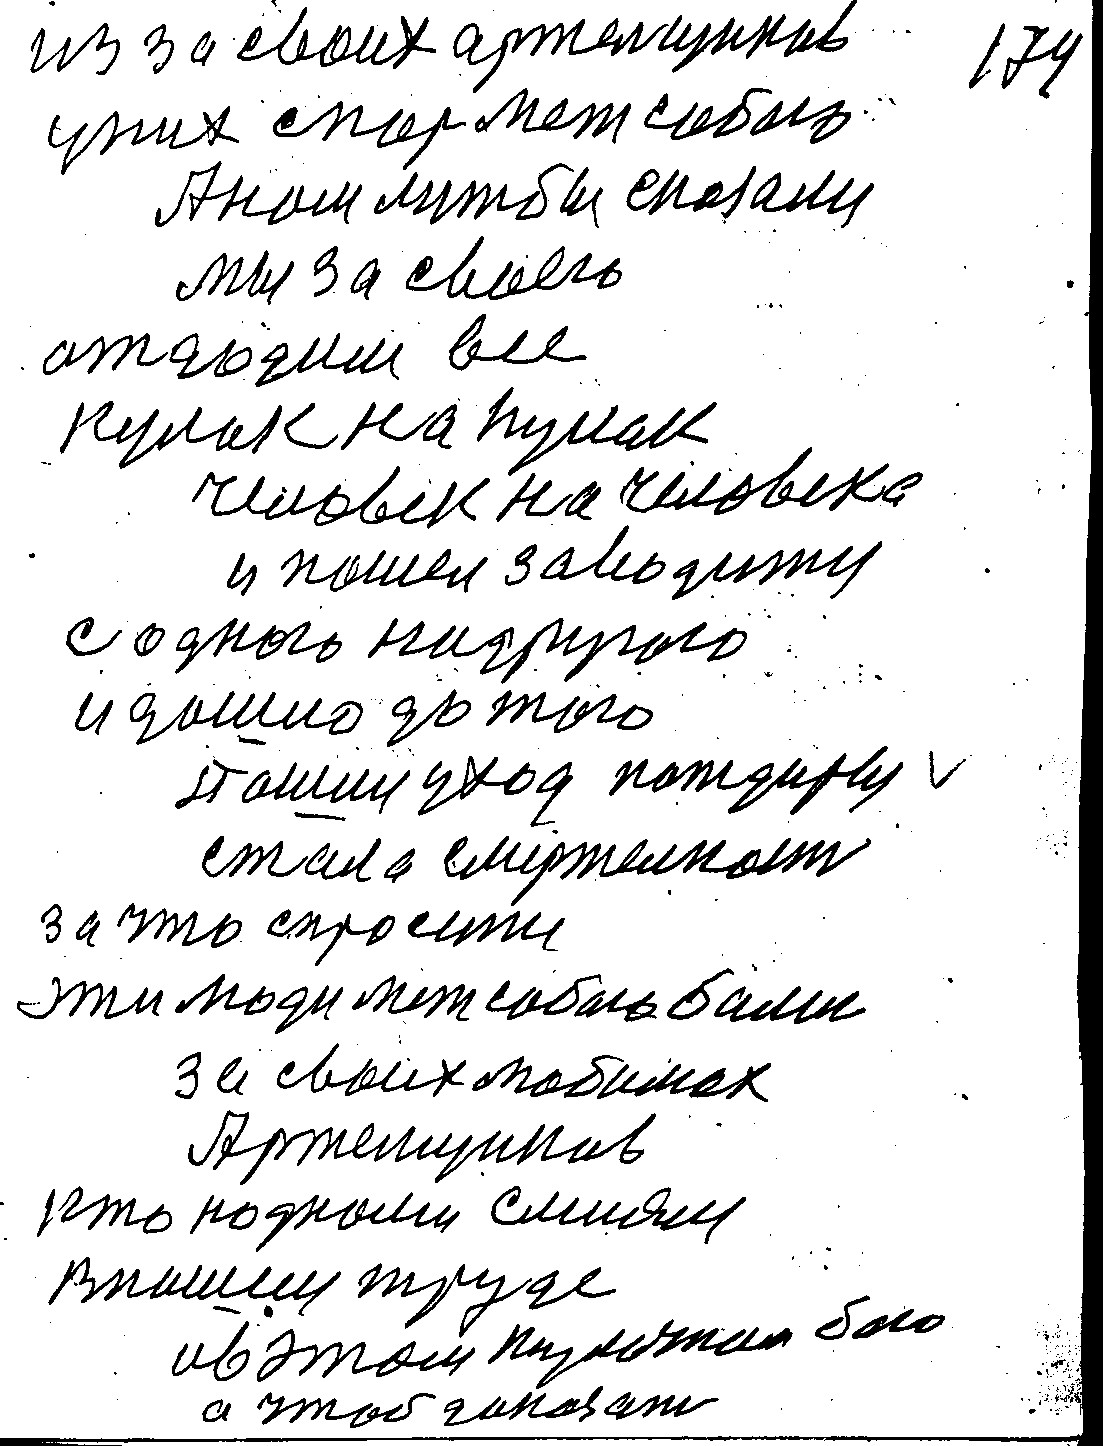 из за своих артелщиков 174
уних спор меж собою
А нам лужбы сказали
мы за своего
отдюдим все
кулак на кулак
человек на человека
и пошел заводити
с одного надругого
и дошло до того
Пошли уход по
стала смертелност
за что спросити
эти люди меж собою бали
за своих любимах
Артелщиков
кто надними смиям
в нашим труде
ав этом бою
а чтоб доказат